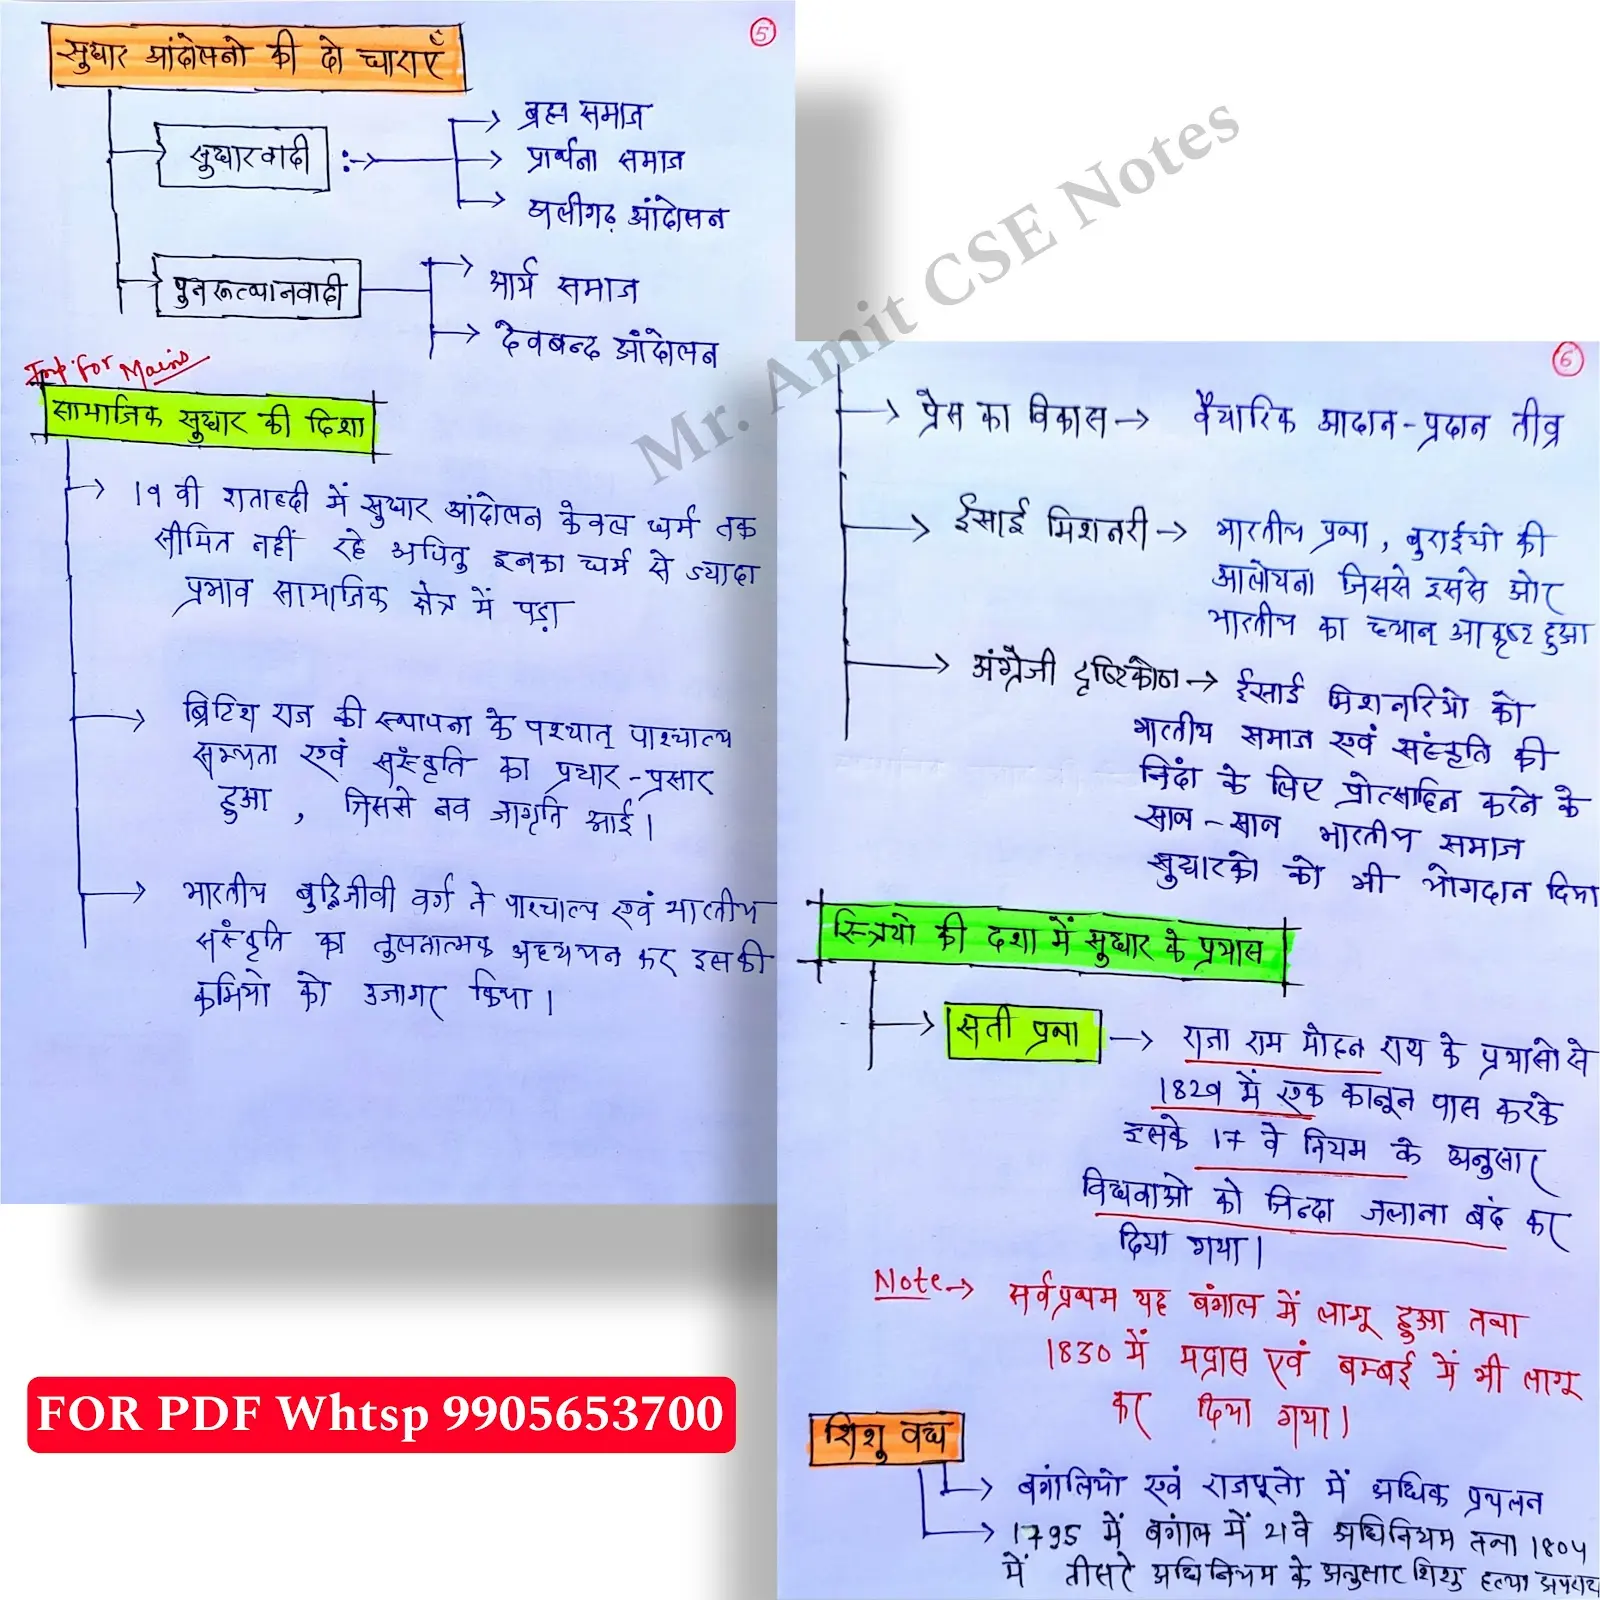 5
सुधार आंदोलनो की दो धाराएँ
सुधारवादी :->
ब्रह्म समाज
प्रार्थना समाज
अलीगढ़ आंदोलन
पुनरूत्थानवादी
आर्य समाज
देवबन्द आंदोलन
Imp. For Mains
सामाजिक सुधार की दिशा
→ 19 वी शताब्दी में सुधार आंदोलन केवल धर्म तक
सीमित नहीं रहे अपितु इनका धर्म से ज्यादा
प्रभाव सामाजिक क्षेत्र में पड़ा
→ ब्रिटिश राज की स्थापना के पश्चात् पाश्चात्य
सभ्यता एवं संस्कृति का प्रचार-प्रसार
हुआ , जिससे नव जागृति आई।
→ भारतीय बुद्धिजीवी वर्ग ने पाश्चात्य एवं भारतीय
संस्कृति का तुलनात्मक अध्ययन कर इसकी
कमियो को उजागर किया।
6
→ प्रेस का विकास → वैचारिक आदान-प्रदान तीव्र
→ ईसाई मिशनरी → भारतीय प्रथा , बुराईयो की
आलोचना जिससे इससे ओर
भारतीय का ध्यान आकृष्ट हुआ
→ अंग्रेजी दृष्टिकोण → ईसाई मिशनरियो को
भारतीय समाज एवं संस्कृति की
निंदा के लिए प्रोत्साहित करने के
साथ-साथ भारतीय समाज
सुधारको को भी योगदान दिया
स्त्रियो की दशा में सुधार के प्रयास
→ सती प्रथा → राजा राम मोहन राय के प्रयासो से
1829 में एक कानून पास करके
इसके 17 वे नियम के अनुसार
विधवाओ को जिन्दा जलाना बंद कर
दिया गया।
Note → सर्वप्रथम यह बंगाल में लागू हुआ तथा
1830 में मद्रास एवं बम्बई में भी लागू
कर दिया गया।
शिशु वध
→ बंगालियो एवं राजपूतो में अधिक प्रचलन
→ 1795 में बंगाल में 21वे अधिनियम तथा 1804
में तीसरे अधिनियम के अनुसार शिशु हत्या अपराध
Mr. Amit CSE Notes
FOR PDF Whtsp 9905653700